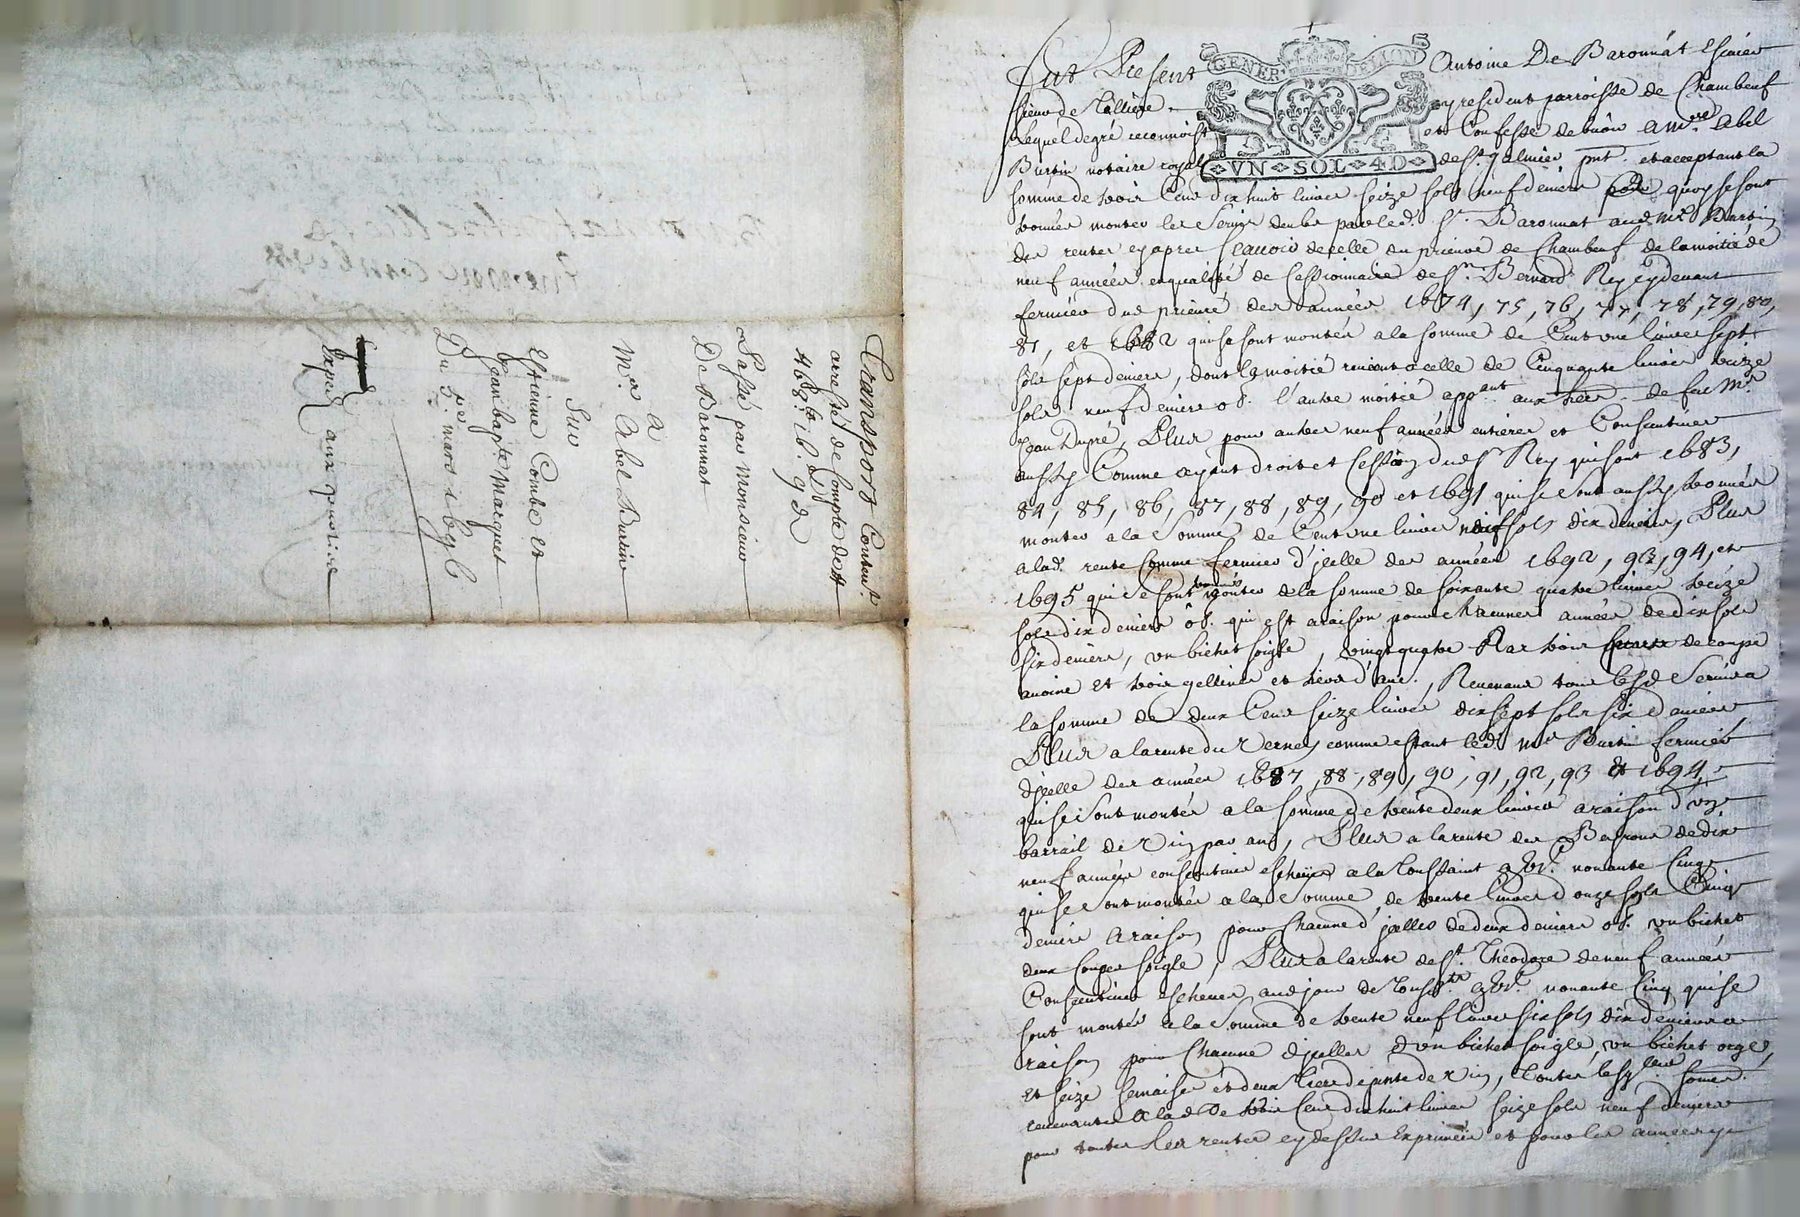 Transport Conten.t
arresté de Compte de
468 lt 16 s 9 d
Passé par Monsieur
De Baronnat
A
Mre Abel Burtin
Sur
Estienne Combe et
Jean bapte Marquet
Du 5e mars 1696
Exper aux quartine
GENER DE LION
VN SOL 4D
Fut Present Antoine De Baronnat Escuier
sieur de Tallieze y resident parroisse de Chambeuf
Lequel de gré reconnoist et Confesse debuoir a mre Abel
Burtin notaire royal de st galmier pnt et acceptant la
somme de trois Cens dix huit liures seize sols neuf deniers a quoy se sont
trouués monter les seruis deubs par led. sr Baronnat aud mre Burtin
des rentes cy apres scauoir de celle du prieuré de Chambeuf de la moitié de
neuf années en qualité de Cessionnaire de sr Bernard Rey cy deuant
fermier dud prieuré des années 1674, 75, 76, 77, 78, 79, 80,
81, et 1682 qui se sont montés a la somme de Cent une liures sept
sols sept deniers, dont la moitié reuient a celle de Cinquante liures treize
sols neuf deniers ob. l'autre moitié appant aux hers de feu Mre
Jean Dupré, Plus pour autres neuf années entieres et Consecutiues
aussy Comme ayant droit et Cession dud sr Rey qui sont 1683,
84, 85, 86, 87, 88, 89, 90 et 1691 qui se sont aussy trouués
monter a la somme de Cent une liures sols dix deniers, Plus
a lad. rente Comme fermier d'icelle des années 1692, 93, 94, et
1695 qui se sont trouués monter a la somme de soixante quatre liures treize
sols dix deniers ob. qui est a raison pour chacunes années de dix sols
six deniers, un bichet soigle, vingt quatre Ras trois de coupe
auoine et trois gellines et tiers d'une, Reuenant tous lesd seruis a
la somme de deux Cens seize liures dix sept sols six deniers
Plus a la rente du Verney comme estant led. mre Burtin fermier
d'icelle des années 1687, 88, 89, 90, 91, 92, 93 et 1694
qui se sont montés a la somme de trente deux liures a raison d'un
barrail de vin par an, Plus a la rente des de dix
neuf années consecutiues escheues a la Toussaint nonante Cinq
qui se sont montés a la somme de trente liures douze sols Cinq
deniers a raison pour Chacune d'icelles de deux deniers ob. un bichet
deux Coupes soigle, Plus a la rente de st. Theodore de neuf années
Consecutiues escheues aud jour de Toussts nonante Cinq qui se
sont montés a la somme de trente neuf liures six sols dix deniers a
raison pour Chacune d'icelles d'un bichet soigle, un bichet orge,
Et seize et deux tiers de pinte de vin, Toutes lesqlles somes
reuenantes a lad De trois Cens dix huit liures seize sols neuf deniers
pour toutes les rentes cy dessus Exprimées et pour les années y